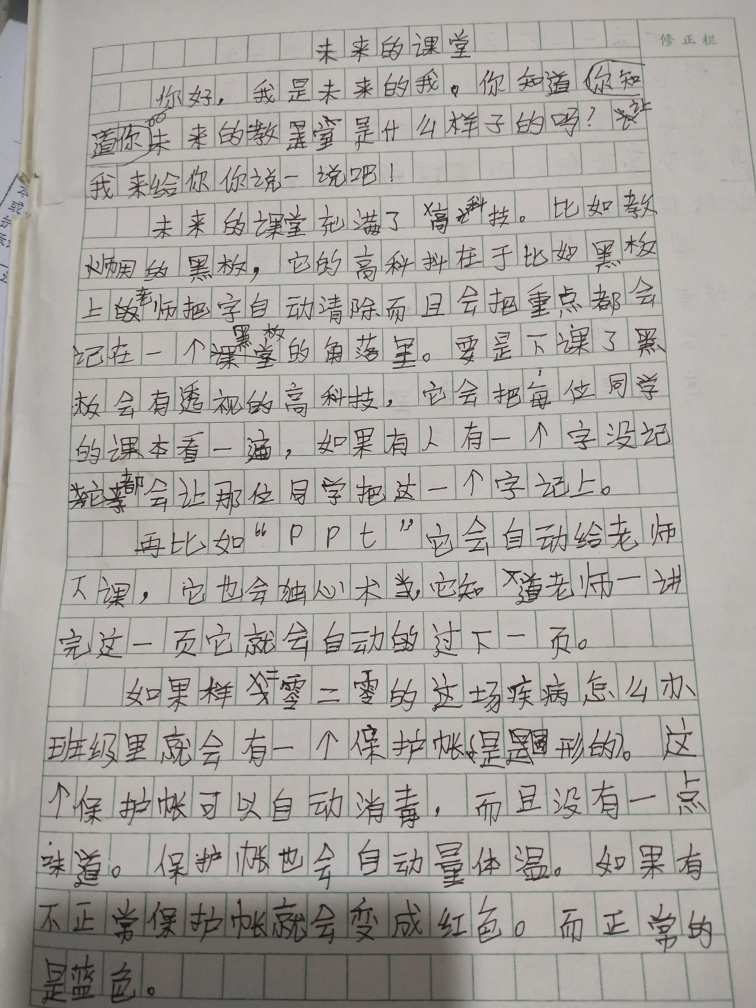 未来的课堂
修正栏
你好，我是未来的我。你知道你知
道你未来的教室堂是什么样子的吗？让
我来给你你说一说吧！
未来的课堂充满了高科技。比如教
师用的黑板，它的高科技在于比如黑板
上的老师把字自动清除而且会把重点都会
记在一个黑板的角落里。要是下课了黑
板会有透视的高科技，它会把每位同学
的课本看一遍，如果有人有一个字没记
它都会让那位同学把这一个字记上。
再比如“ppt”它会自动给老师
下课，它也会独心术当它知道老师一讲
完这一页它就会自动的过下一页。
如果样二零二零的这场疾病怎么办
班级里就会有一个保护帐（是圆形的）。这
个保护帐可以自动消毒，而且没有一点
味道。保护帐也会自动量体温。如果有
不正常保护帐就会变成红色。而正常的
是蓝色。